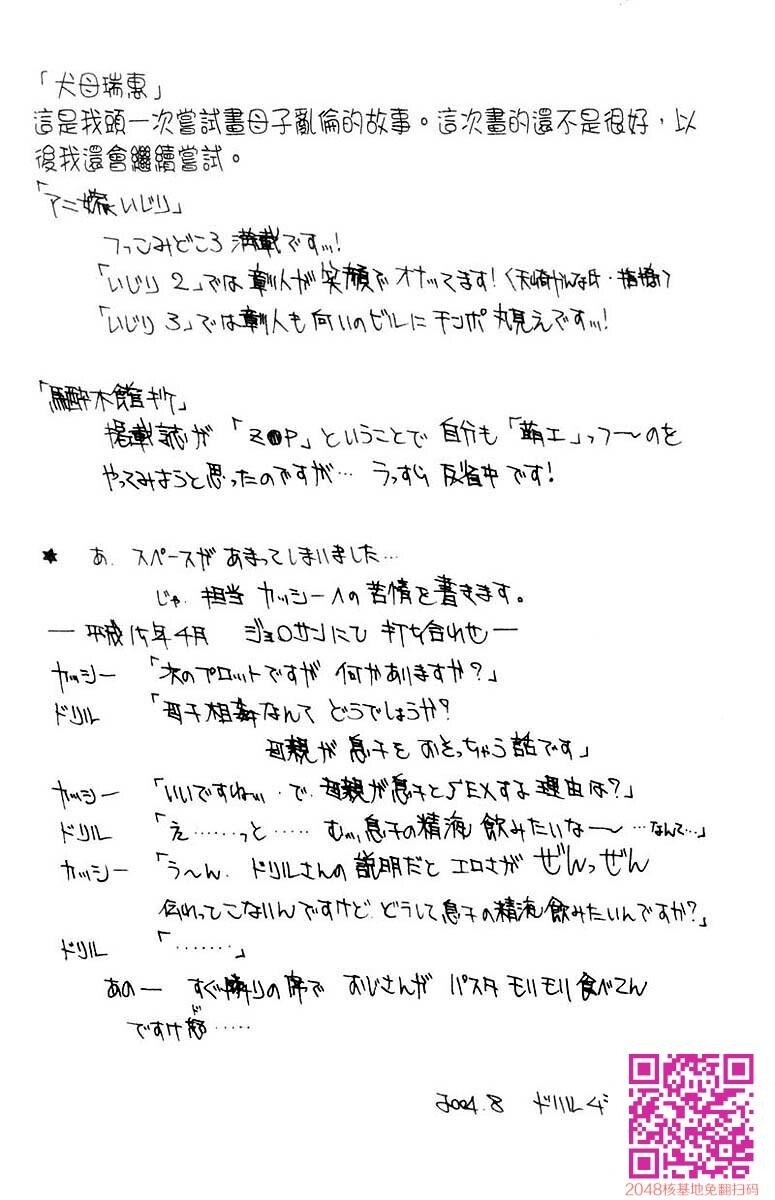 「犬母瑞惠」
這是我頭一次嘗試畫母子亂倫的故事。這次畫的還不是很好，以
後我還會繼續嘗試。
「アニ嫁いじり」
つっこみどころ満載ですッ!
「いじり2」では彰人が笑顔でオナってます!
「いじり3」では彰人も向いのビルにチンポ丸見えですッ!
「馬酔木館
掲載誌が「Z●P」ということで自分も「萌エ」っつ〜のを
やってみようと思ったのですが… うっすら反省中です!
★ あ. スペースがあまってしまいました…
じゃ. 担当カッシーへの苦情を書きます。
― 平成 年4月 ジョ サンにて 打ち合わせ ―
カッシー 「次のプロットですが 何かありますか?」
ドリル 「母子相姦なんて どうでしょうか?
母親が息子を おそっちゃう話です」
カッシー 「いいですねッ・で. 母親が息子とSEXする理由は?」
ドリル 「え……っと…… むッ,息子の精液飲みたいな〜 …なんて…」
カッシー 「う〜ん. ドリルさんの説明だと エロさが ぜんっぜん
伝わってこないんですけど. どうして息子の精液飲みたいんですか?」
ドリル 「.......」
あのー すぐ隣りの席で おじさんが パスタ モリモリ食べてん
ですけど……
2004.8 ドリル
2048核基地免翻扫码